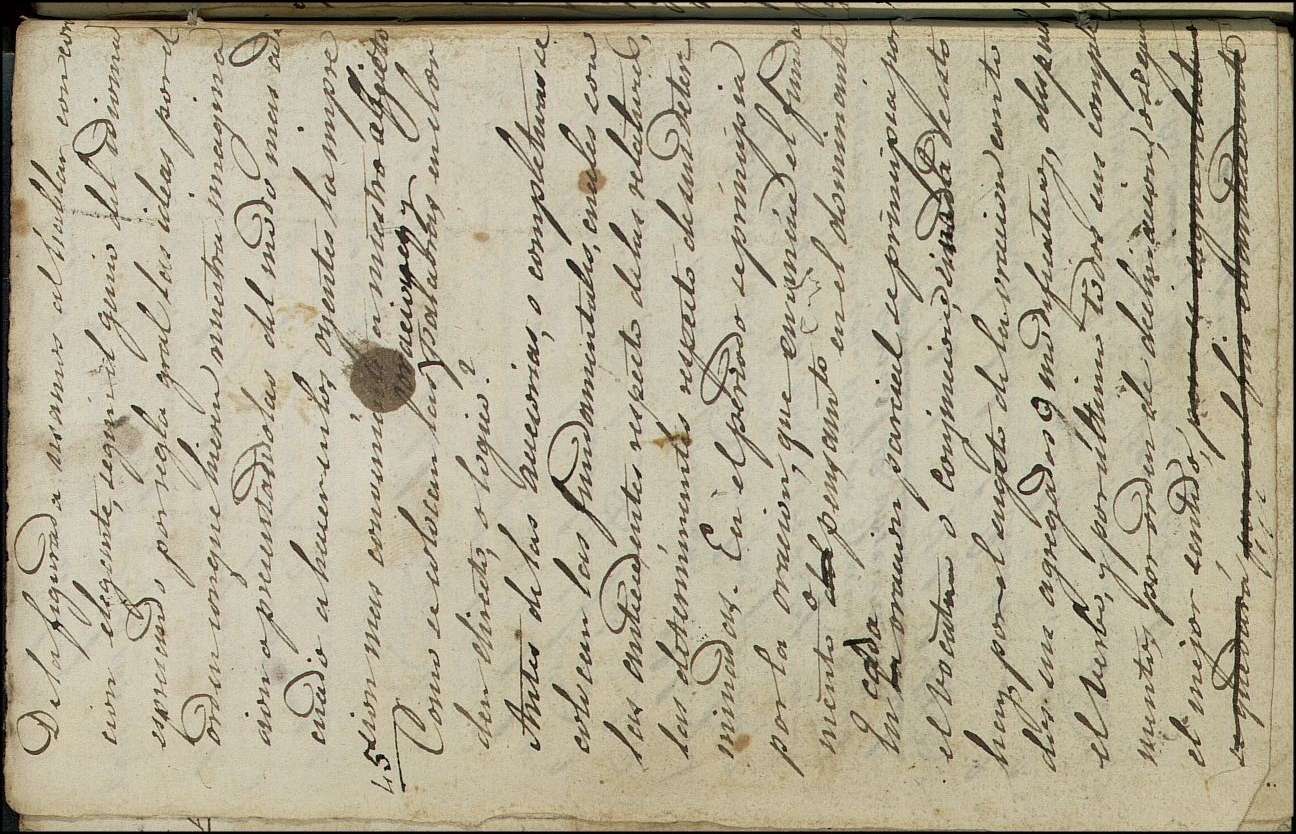 De la figurada usamos al hablar con con
cion elegante, segun el genio del Idioma
espresando por regla gral las ideas por el
orden con que hieren nuestra imagina
cion o presentandolas del modo mas a
cuado a hacer en los oyentes la impre
sion mas conveniente a nuestro objeto
45 nuevas y
Como se colocan las palabras en el or
den directo, o logico?
Antes de las accesorias, o completivas se
colocan las fundamentales, en las con
las antecedentes respecto de las relativas,
las determinantes respecto de las deter
minadas. En el período se principia
por la oracion, que enuncia el funda
mento o el pensamiento en el dominante
En cada oracion parcial se principia por
el vocativo o conjuncion,
luego por el sugeto de la oracion con to
dos sus agregados y modificativos, despues
el verbo, y por ultimo todos sus comple
mentos por orden de declinacion, o segun
el mejor sentido,